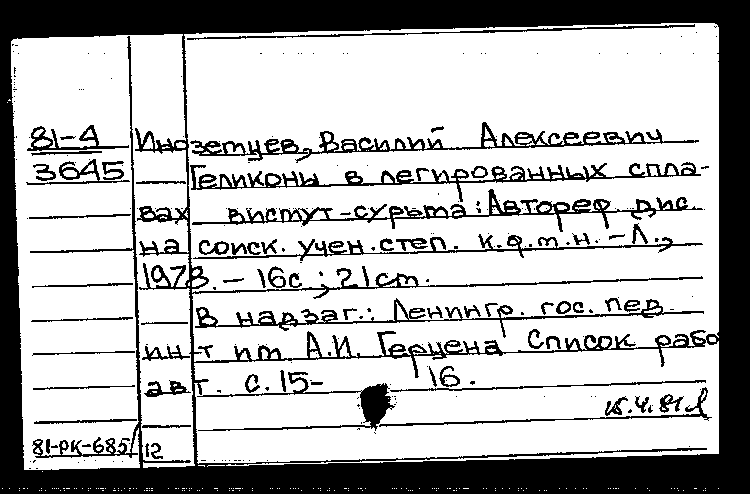 81-4 Иноземцев, Василий Алексеевич
3645 Геликоны в легированных спла-
вах висмут-сурьма: Автореф. дис.
на соиск. учен. степ. к.ф.м.н. - Л.,
1978. - 16с; 21 ст.
В надзаг.: Ленингр. гос. пед.
ин-т им А.И. Герцена. Список рабо
авт. с. 15- 16.
15.4.81
81-РК-685/12